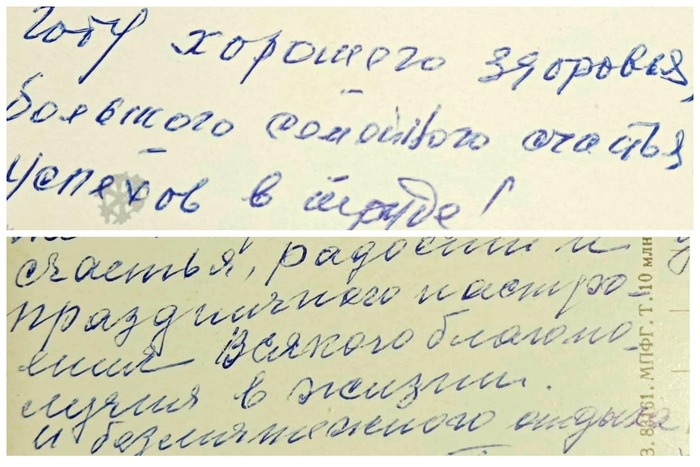 году хорошего здоровья,
большого семейного счастья
успехов в труде!
счастья, радости и
праздничного настро-
ения всякого благопо-
лучия в жизни.
и безмятежного отдыха
З. 83161. МПФГ. Т. 10 млн